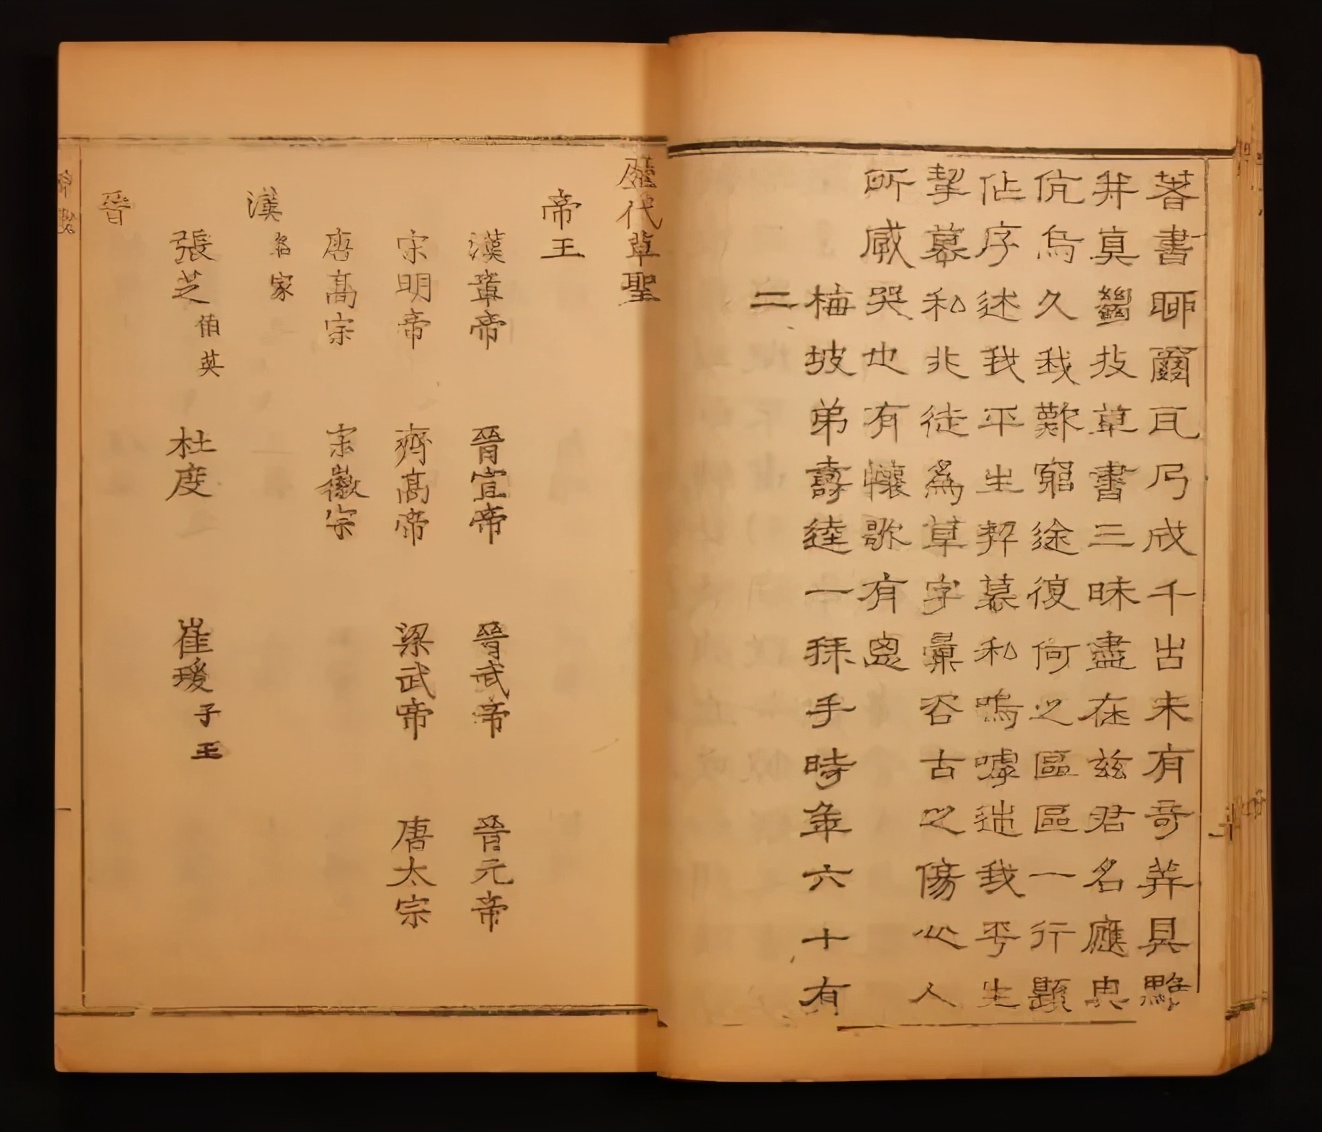 著書聊爾瓦乃成千古未有奇莽具黟
并真蠲技草書三昧盡在玆君名應史
伉焉久我歎窮途復何之區區一行題
佔序述我平生契慕和嗚嘑述我平生
挈慕和兆徒為草字彙容古之傷心人
所感哭也有懷歌有思
梅坡弟壽逵一拜手時年六十有
二
歷代草聖
帝王
漢章帝 晉宣帝 晉武帝 晉元帝
宋明帝 齊高帝 梁武帝 唐太宗
唐高宗 宋徽宗
漢名家
張芝伯英 杜度 崔瑗子玉
晉